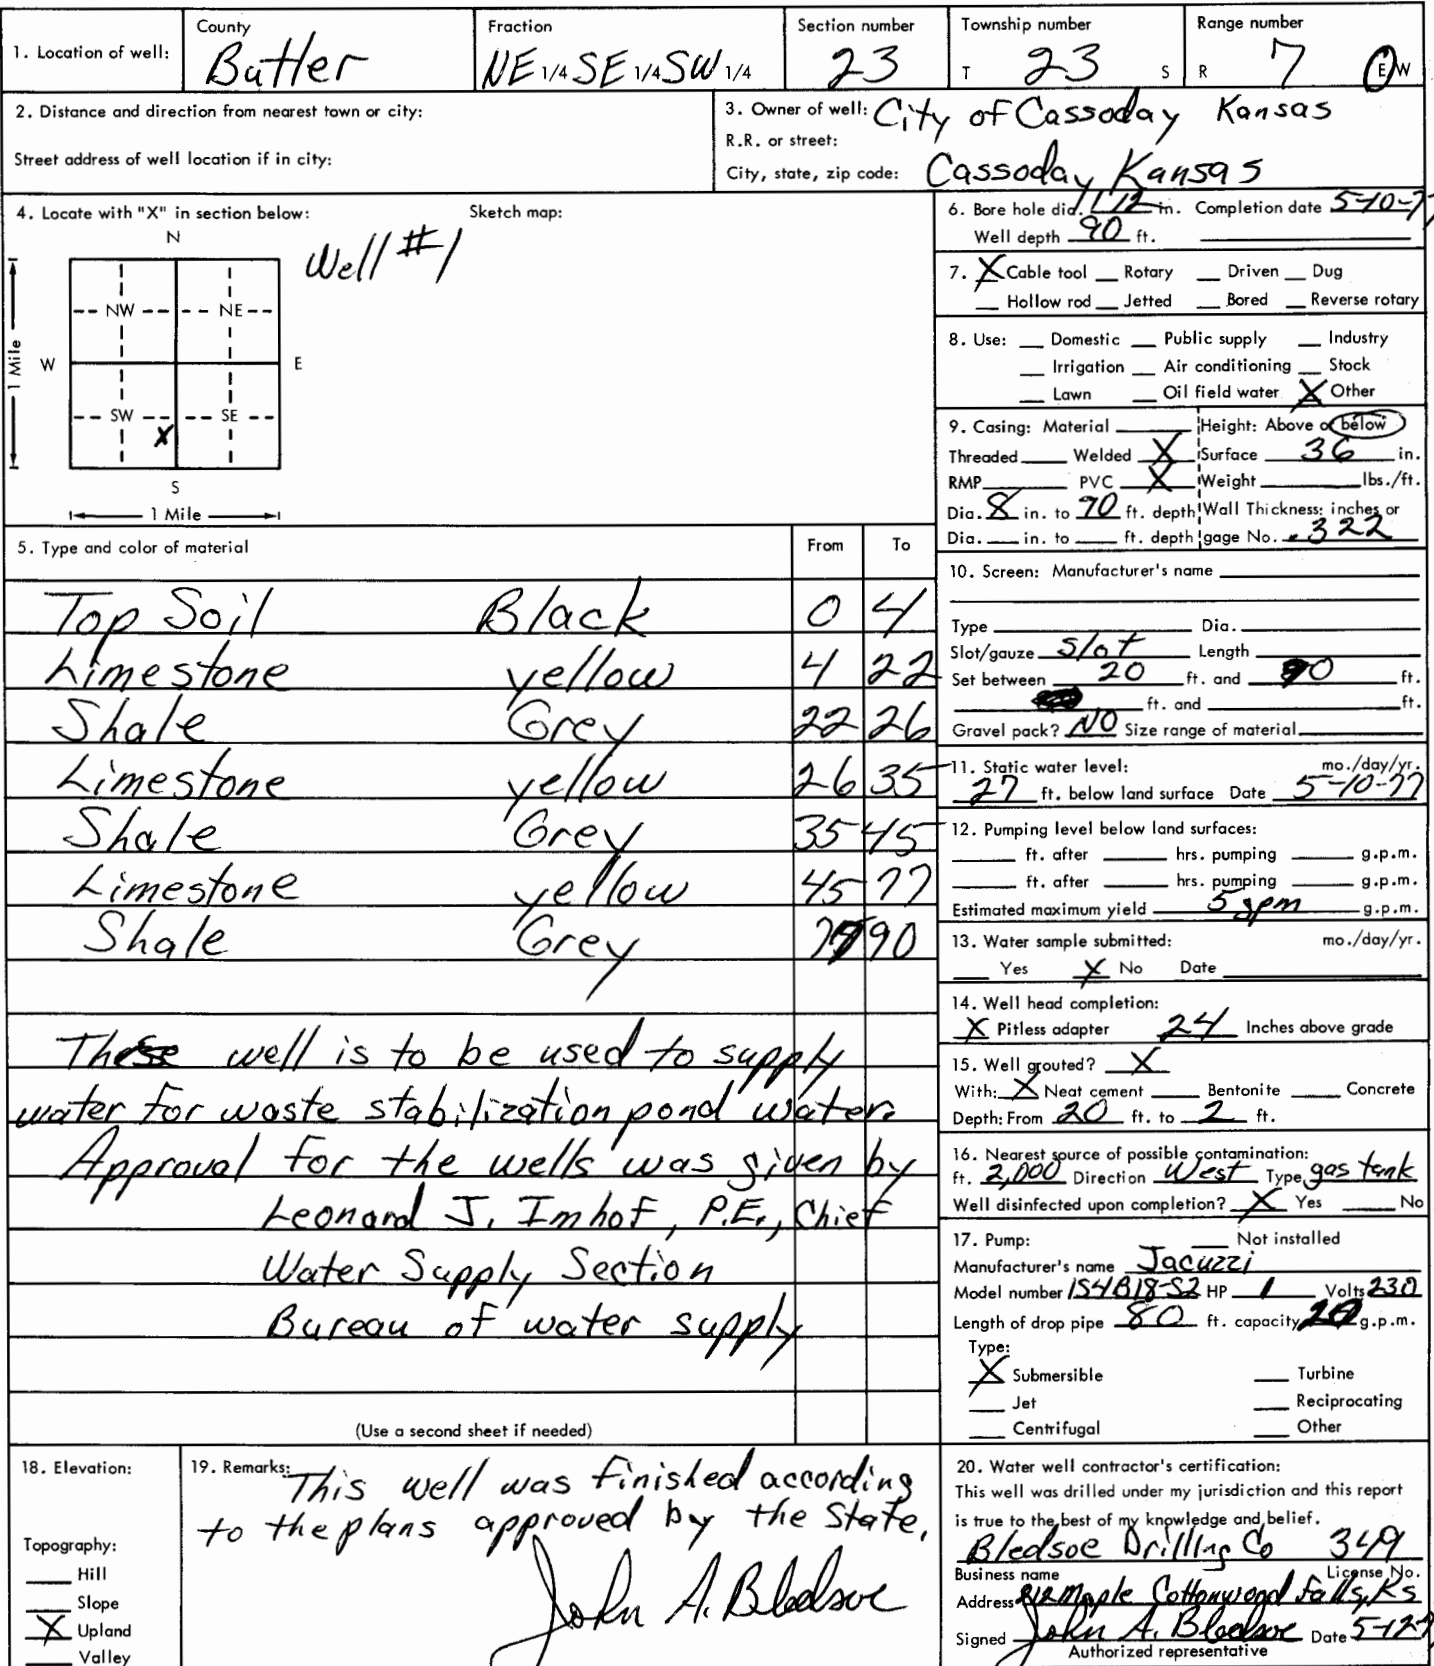 1. Location of well: County Butler Fraction NE 1/4 SE 1/4 SW 1/4 Section number 23 Township number T 23 S Range number R 7 E/W
2. Distance and direction from nearest town or city:
Street address of well location if in city:
3. Owner of well: City of Cassoday Kansas
R.R. or street:
City, state, zip code: Cassoday Kansas
4. Locate with "X" in section below: Sketch map:
Well #1
N
NW NE
W E
SW SE
X
S
1 Mile
1 Mile
5. Type and color of material From To
Top Soil Black 0 4
Limestone yellow 4 22
Shale Grey 22 26
Limestone yellow 26 35
Shale Grey 35 45
Limestone yellow 45 77
Shale Grey 90
These well is to be used to supply
water for waste stabilization pond water.
Approval for the wells was given by
Leonard J. Imhof, P.E., Chief
Water Supply Section
Bureau of water supply
(Use a second sheet if needed)
6. Bore hole dia. in. Completion date 5-10-77
Well depth 90 ft.
7. X Cable tool Rotary Driven Dug
Hollow rod Jetted Bored Reverse rotary
8. Use: Domestic Public supply Industry
Irrigation Air conditioning Stock
Lawn Oil field water X Other
9. Casing: Material Height: Above or below
Threaded Welded X Surface 36 in.
RMP PVC X Weight lbs./ft.
Dia. 8 in. to 90 ft. depth Wall Thickness: inches or
Dia. in. to ft. depth gage No. .322
10. Screen: Manufacturer's name
Type Dia.
Slot/gauze slot Length
Set between 20 ft. and 90 ft.
ft. and ft.
Gravel pack? NO Size range of material
11. Static water level: mo./day/yr.
27 ft. below land surface Date 5-10-77
12. Pumping level below land surfaces:
ft. after hrs. pumping g.p.m.
ft. after hrs. pumping g.p.m.
Estimated maximum yield 5 gpm g.p.m.
13. Water sample submitted: mo./day/yr.
Yes X No Date
14. Well head completion:
X Pitless adapter 24 Inches above grade
15. Well grouted? X
With: X Neat cement Bentonite Concrete
Depth: From 20 ft. to 2 ft.
16. Nearest source of possible contamination:
ft. 2,000 Direction West Type gas tank
Well disinfected upon completion? X Yes No
17. Pump: Not installed
Manufacturer's name Jacuzzi
Model number 1S4B18-S2 HP 1 Volts 230
Length of drop pipe 80 ft. capacity 20 g.p.m.
Type:
X Submersible Turbine
Jet Reciprocating
Centrifugal Other
18. Elevation:
Topography:
Hill
Slope
X Upland
Valley
19. Remarks: This well was finished according
to the plans approved by the State.
John A. Bledsoe
20. Water well contractor's certification:
This well was drilled under my jurisdiction and this report
is true to the best of my knowledge and belief.
Bledsoe Drilling Co 349
Business name License No.
Address Maple Cottonwood Falls, Ks
Signed John A. Bledsoe Date
Authorized representative